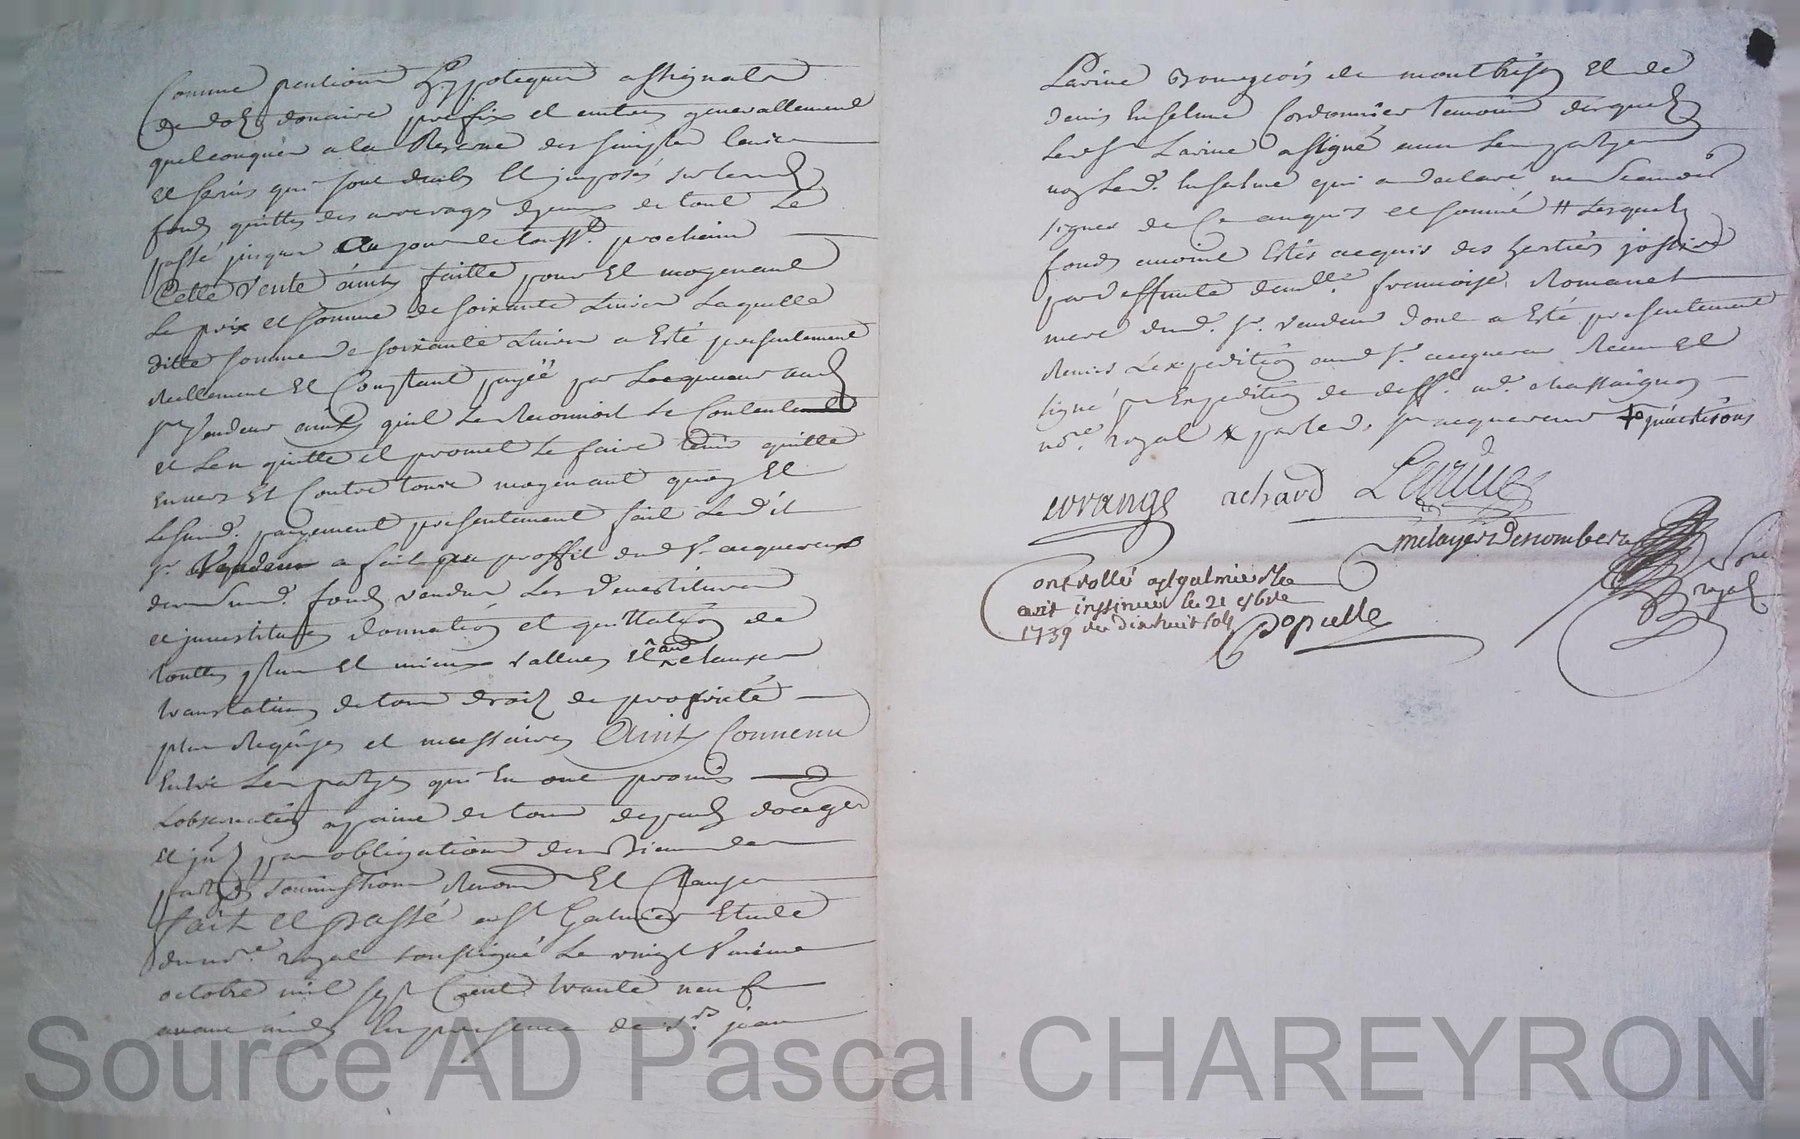 Comme pentions hypotèques assignals
de dots donaire prefix et autres generallement
quelconques a la Reserve des simples
et servis qui sont deubs et imposés sur lesd
fonds quittes des arrerages d'yceux de tout le
passé jusques au jour de touss.t prochain
Cette Vente ainsy faitte pour Et moyenant
le prix et somme de soixante Livres Laquelle
ditte somme de soixante Livres a Esté presentement
Reellement Et Comptant payéé par Lacquereur aud
sr Vendeur ainsy quil Le Reconnoit Se Contente
et Len quitte et promet Le faire tenir quitte
Envers Et Contre tous moyenant quoy Et
Le susd. payement presentement fait Le dit
sr Vendeur a fait au proffit dud sr acquereur
des susd. fonds vendus Les Devestitures
et jnvestitures donnation et quittation de
touttes plus et mieux vallues Et and clauses
translatives de tous droits de proprieté
plus Requises et necessaires Ainsy Convenu
Entre Les partyes qui En ont promis
Lobservation a peine de tous depends domages
et jnts par obligations des Biens des
partyes soumissions Renon Et Clauses
fait et passé a st Galmier Etude
du nore royal soussigné Le vingt Vnieme
octobre mil sept Cent trante neuf
avant midy En presence de sr jean
Lavine Bourgeois de montbrison Et de
denis Enselme Cordonnier temoins desquels
Ledt sr Lavine a signé avec Les partyes
non Led. Enselme qui a declaré ne scavoir
signer de Ce enquis et sommé # Lesquels
fonds auroint Estés acquis des hertiers jossire
par deffunte demlle francoise Romanet
mere dud. sr. vendeur dont a Esté presentement
Remis Lexpedition aud sr acquereur Receu Et
signé par Expedition de deff. me. chassaignon
nore royal par led. sr acquereur
corange achard Lavine
melayer Descombera
nore
royal
Controllé a st galmier
et insinué le 21 8bre
1739 Reçu dixhuit sols
Popielle
Source AD Pascal CHAREYRON